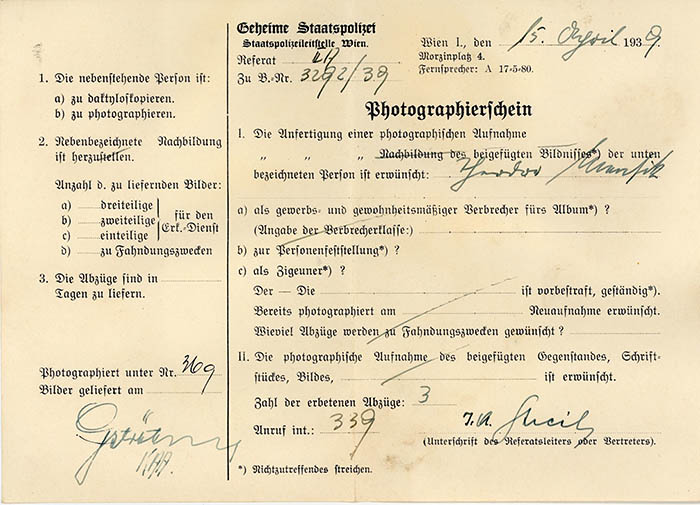 1. Die nebenstehende Person ist:
a) zu daktyloskopieren.
b) zu photographieren.
2. Nebenbezeichnete Nachbildung
ist herzustellen.
Anzahl d. zu liefernden Bilder:
a) dreiteilige
b) zweiteilige
c) einteilige
für den
Erk.-Dienst
d) zu Fahndungszwecken
3. Die Abzüge sind in
Tagen zu liefern.
Photographiert unter Nr. 369
Bilder geliefert am
Geheime Staatspolizei
Staatspolizeileitstelle Wien.
Referat
Zu B.-Nr. 3292/39
Wien I., den 15. April 1939.
Morzinplatz 4.
Fernsprecher: A 17-5-80.
Photographierschein
I. Die Anfertigung einer photographischen Aufnahme
„ „ „ Nachbildung des beigefügten Bildnisses*) der unten
bezeichneten Person ist erwünscht: Theodor
a) als gewerbs- und gewohnheitsmäßiger Verbrecher fürs Album*) ?
(Angabe der Verbrecherklasse:)
b) zur Personenfeststellung*) ?
c) als Zigeuner*) ?
Der — Die ist vorbestraft, geständig*).
Bereits photographiert am Neuaufnahme erwünscht.
Wieviel Abzüge werden zu Fahndungszwecken gewünscht ?
II. Die photographische Aufnahme des beigefügten Gegenstandes, Schrift-
stückes, Bildes, ist erwünscht.
Zahl der erbetenen Abzüge: 3
Anruf int.: 339
(Unterschrift des Referatsleiters oder Vertreters).
*) Nichtzutreffendes streichen.